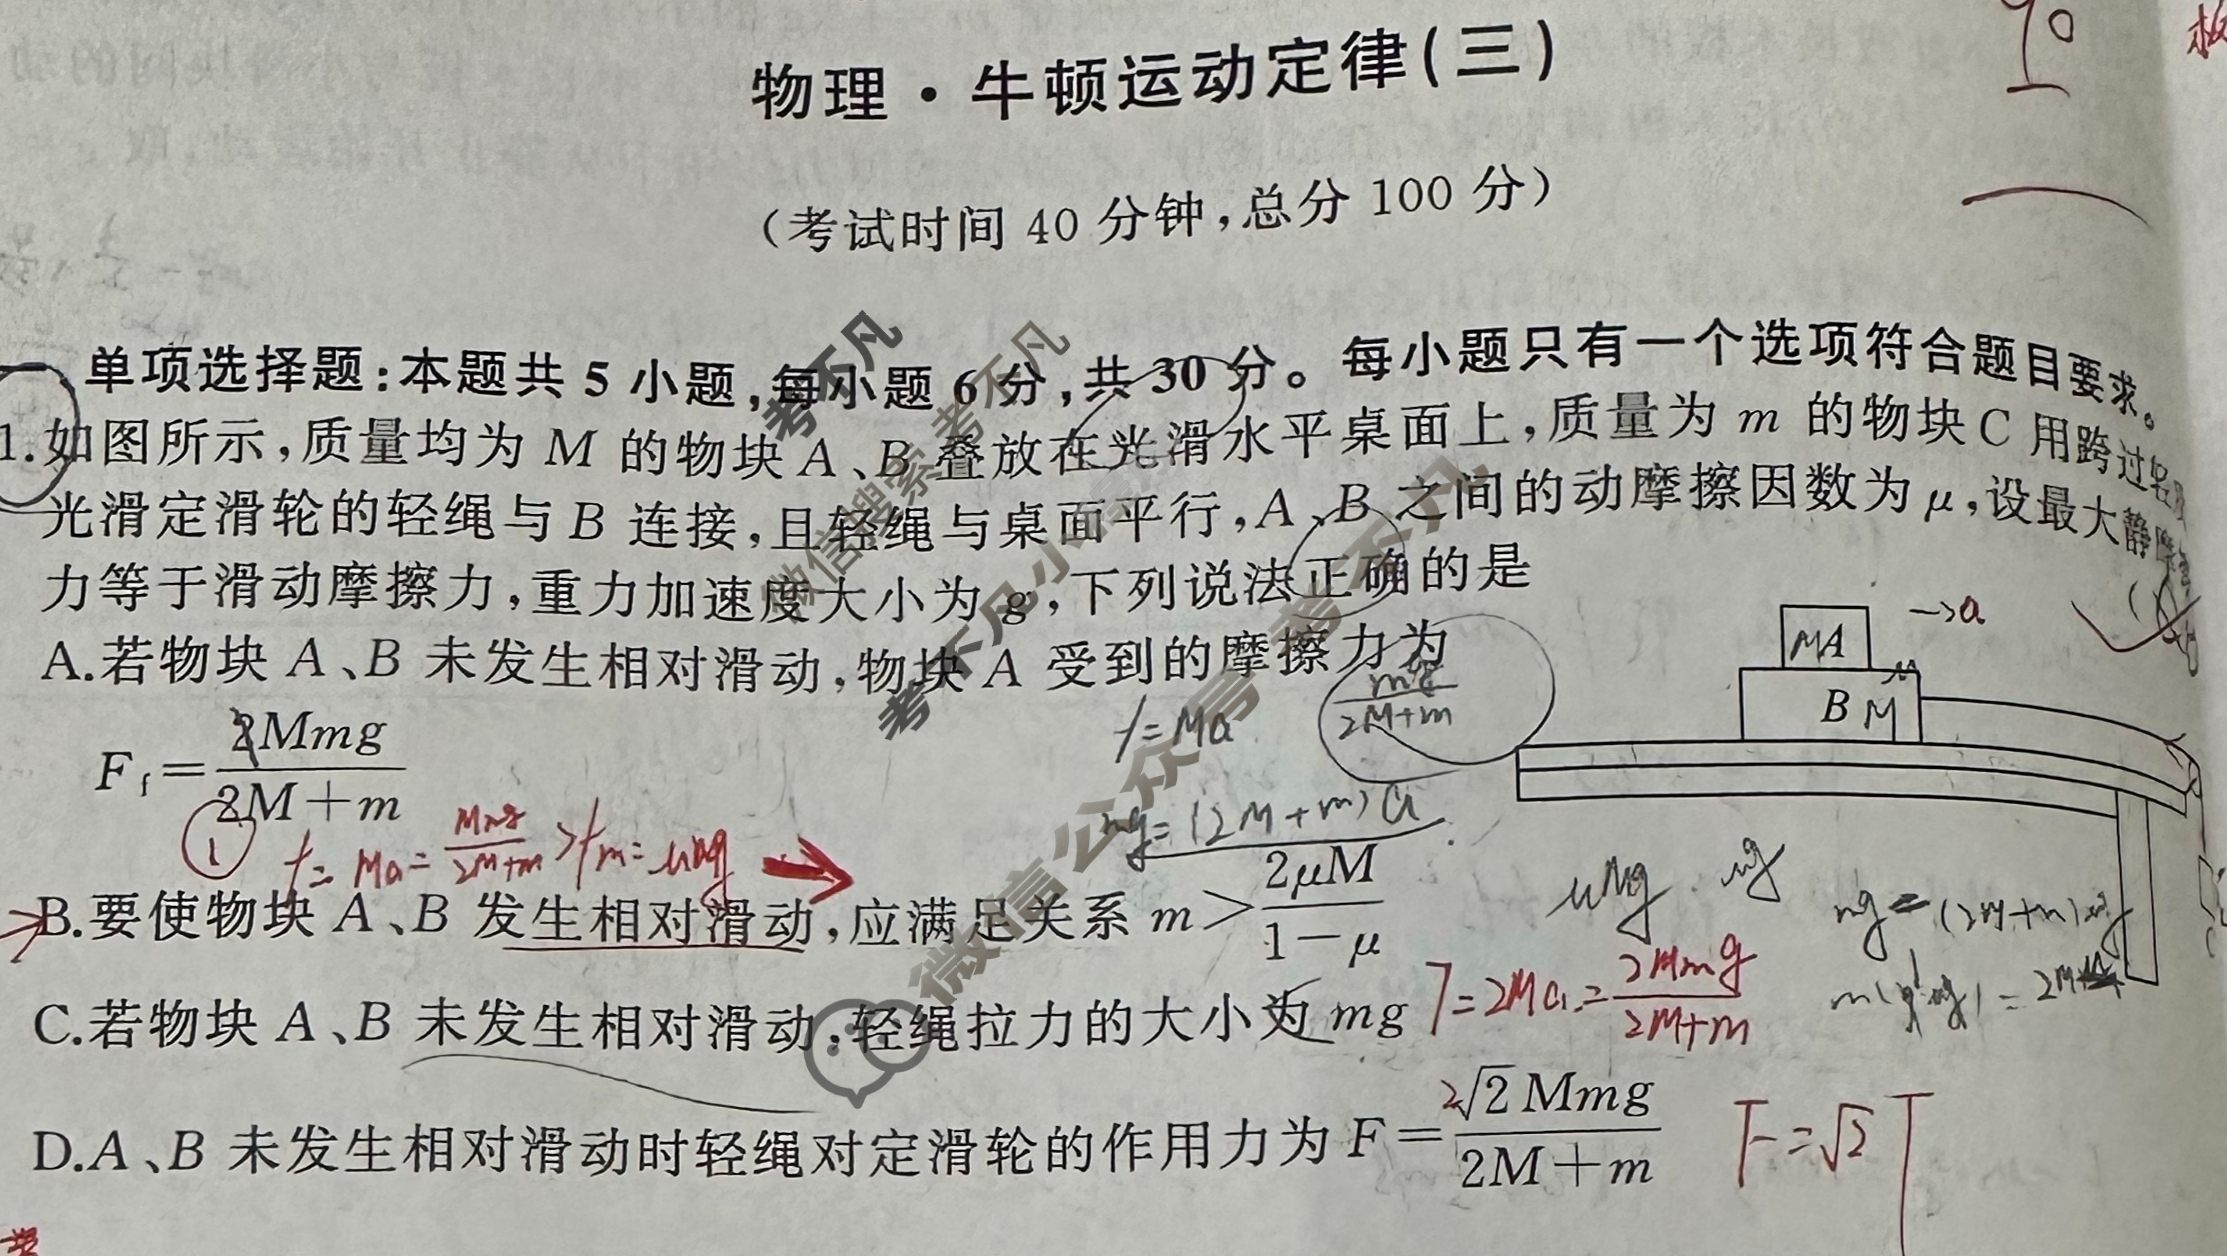 物理·牛顿运动定律(三)
90
(考试时间 40 分钟,总分 100 分)
单项选择题:本题共 5 小题,每小题 6 分,共 30 分。每小题只有一个选项符合题目要求。
1.如图所示,质量均为 M 的物块 A、B 叠放在光滑水平桌面上,质量为 m 的物块 C 用跨过轻
光滑定滑轮的轻绳与 B 连接,且轻绳与桌面平行,A、B 之间的动摩擦因数为 μ,设最大静摩擦
力等于滑动摩擦力,重力加速度大小为 g,下列说法正确的是
→a
MA
B M
A.若物块 A、B 未发生相对滑动,物块 A 受到的摩擦力为
f=Ma
mg/(2M+m)
F_f=2Mmg/(2M+m)
mg=(2M+m)a
① f=Ma=Mmg/(2M+m)>fm=μMg
B.要使物块 A、B 发生相对滑动,应满足关系 m>2μM/(1-μ)
μMg μg
mg=(2M+m)μg
C.若物块 A、B 未发生相对滑动,轻绳拉力的大小为 mg
T=2Ma=2Mmg/(2M+m)
D.A、B 未发生相对滑动时轻绳对定滑轮的作用力为 F=2√2Mmg/(2M+m)
F=√2T
考不凡
考不凡
微信搜索
考不凡小
微信公众号:考不凡